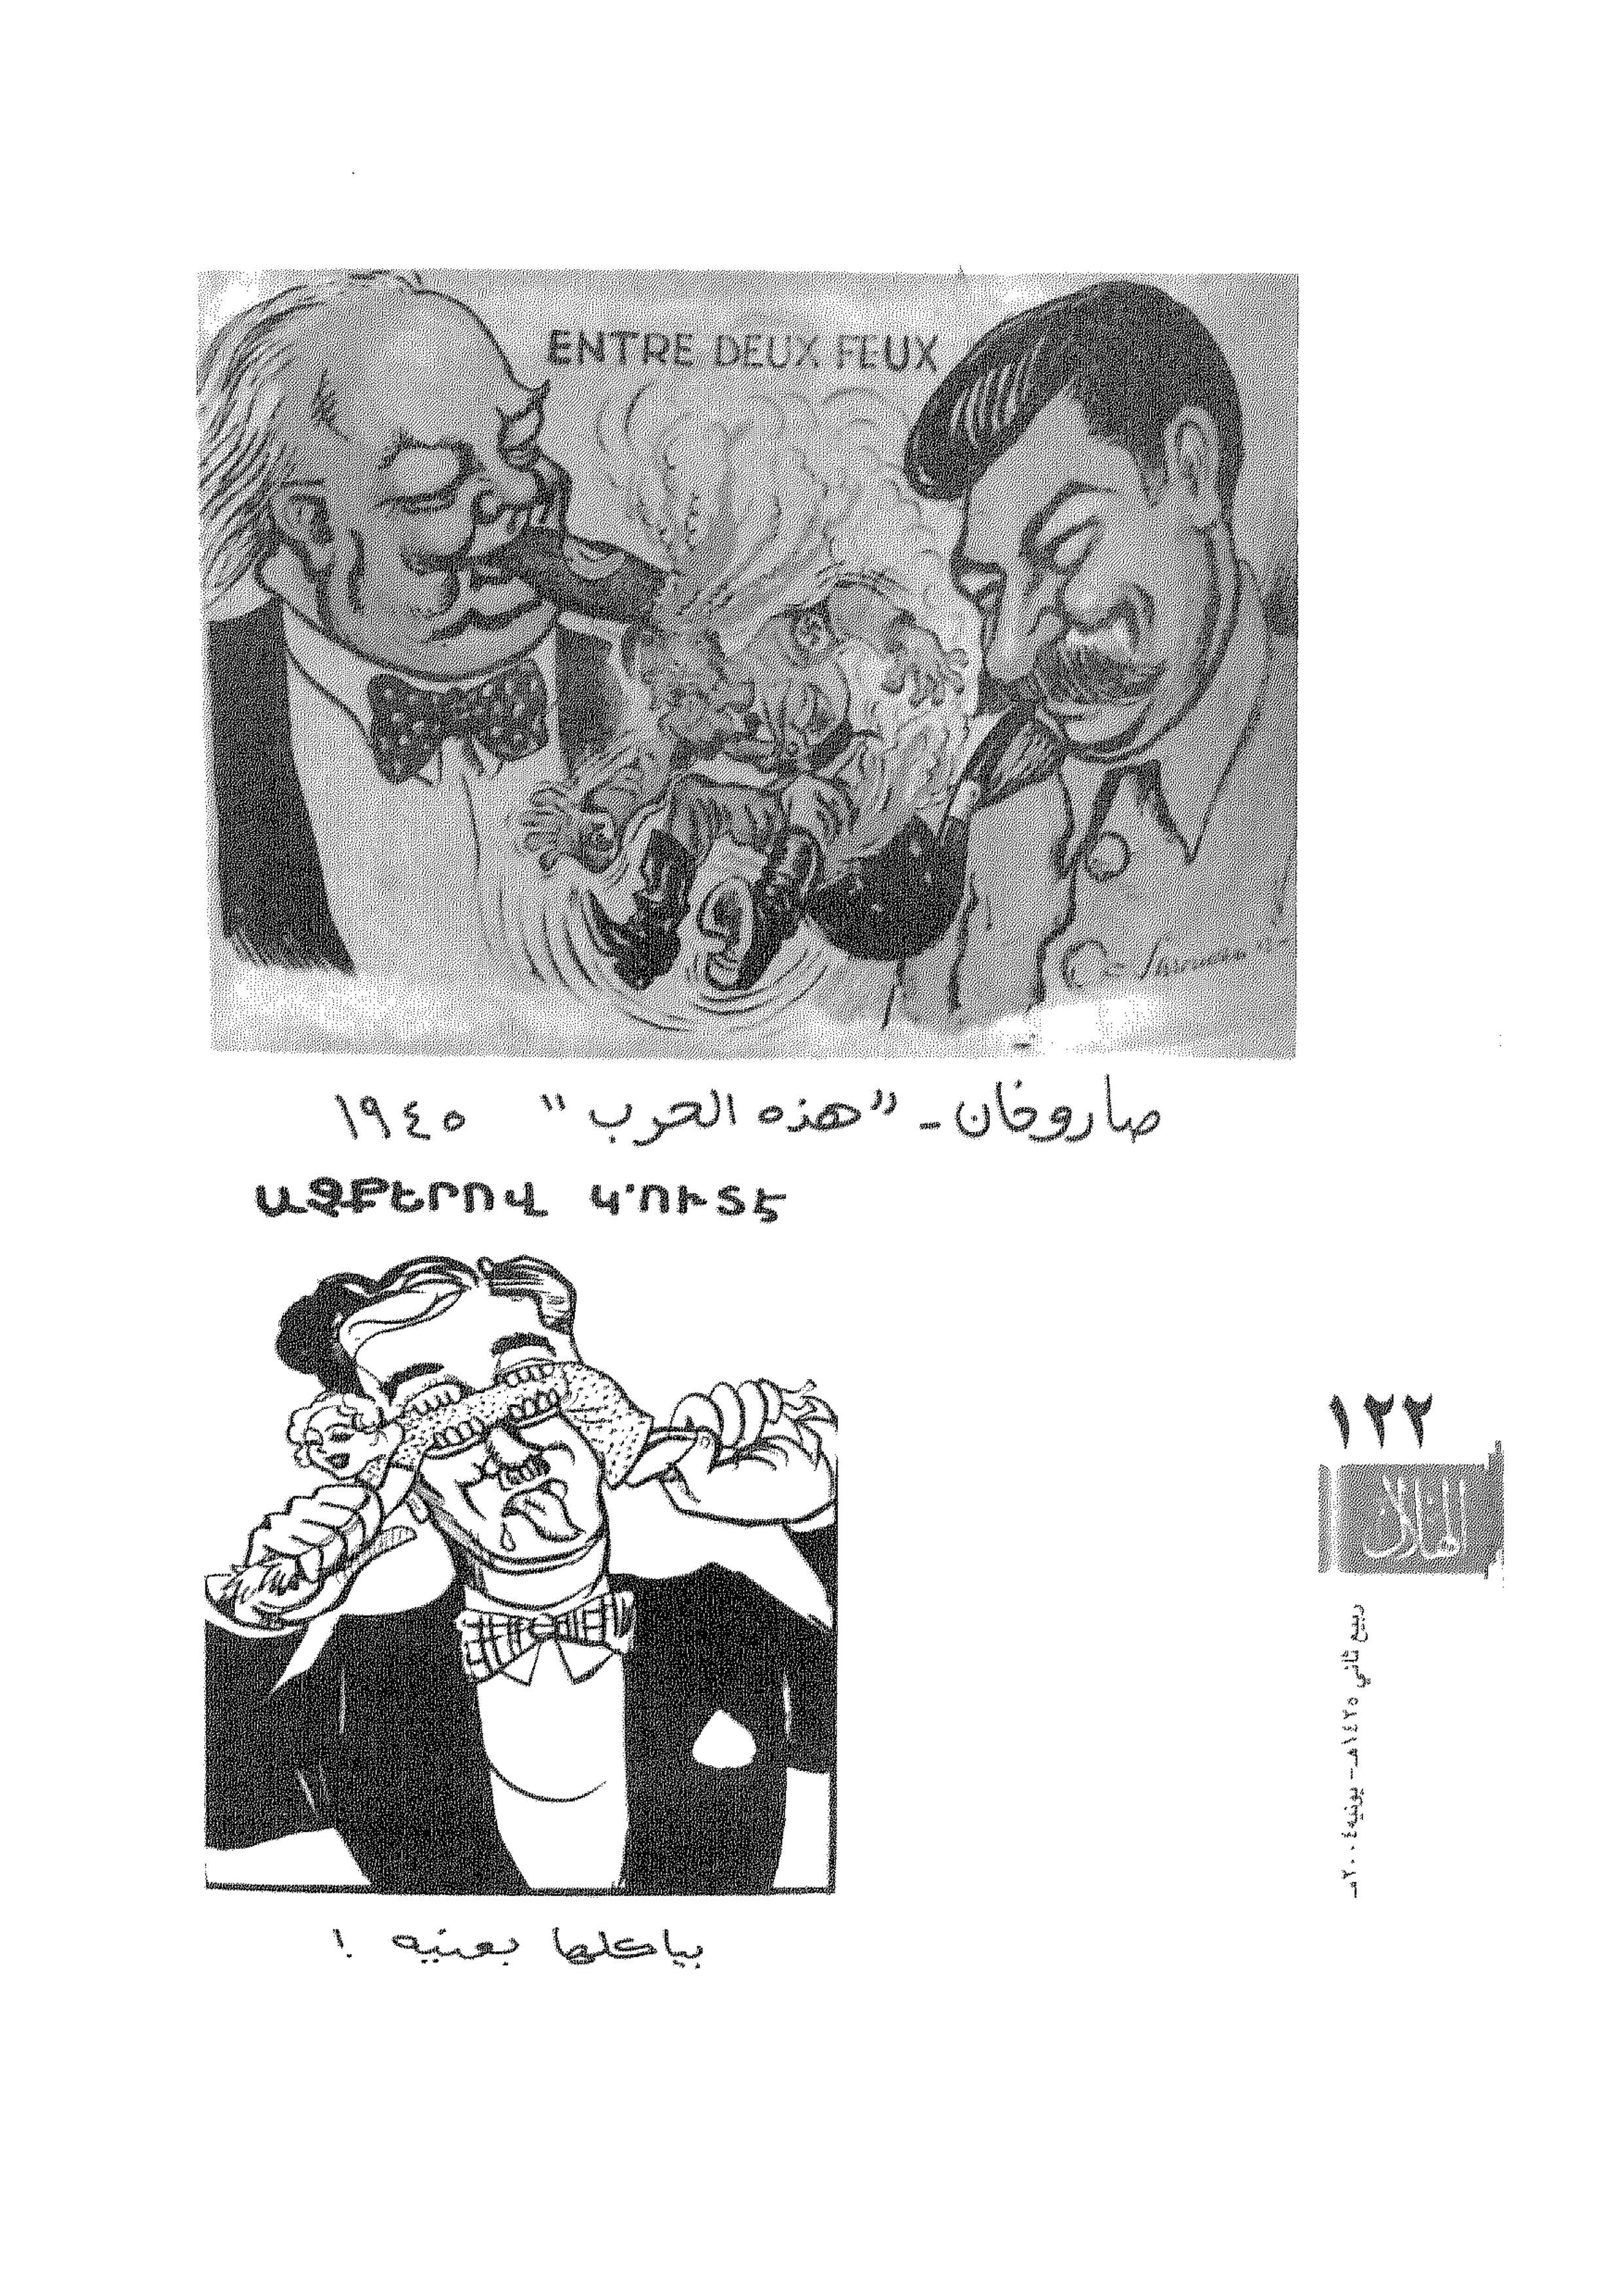 ENTRE DEUX FEUX
صاروخان - "هذه الحرب" ١٩٤٥
ԱՉՔԵՐՈՎ Կ'ՈՒՏԷ
بياكلها بعنيه !
١٢٢
الهلال
ربيع ثاني ١٤٢٥هـ - يونيه ٢٠٠٤مـ